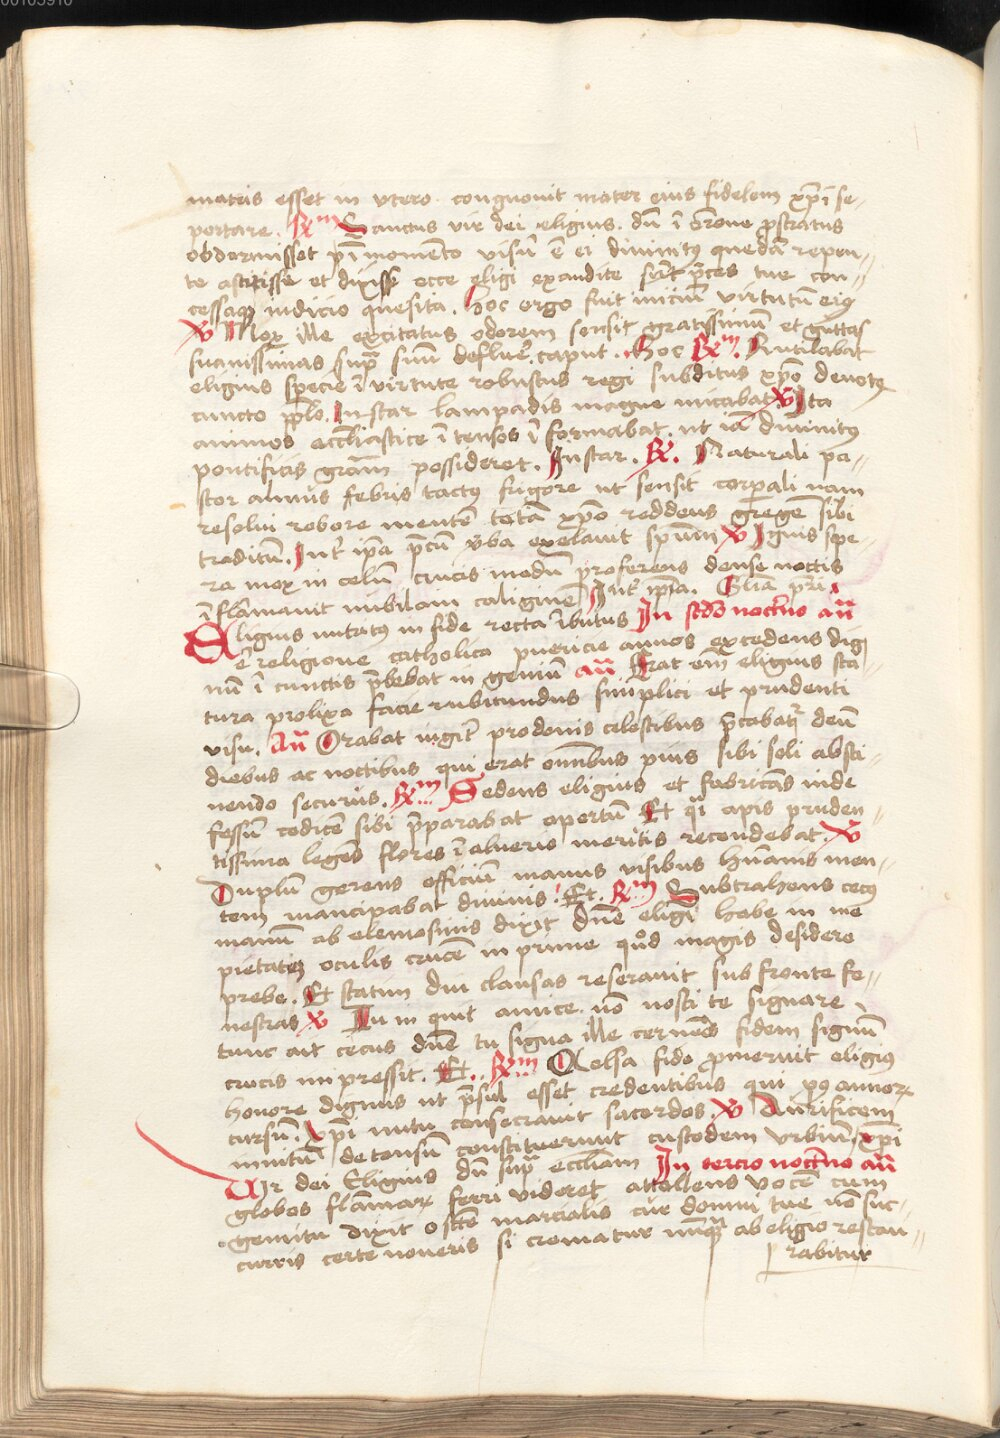 00105910
matris esset in vtero congnouit mater eius fidelem xp̄i se-
portare. Rm Sanctus vir dei eligius. dū ī orōne prostratus
obdormisset p̄i momento visū ē ei diuinitus quedā repen-
te astitisse et dixisse ecce eligi exaudite sūt preces tue con-
cessaque indicio quesita. Hoc ergo fuit iniciū virtutū eius
v Mox ille excitatus odorem sensit gratissimū et guttas
suauissimas supra suū defluere caput. Hoc Rm. Rutilabat
eligius specie ī virtute robustus regi subditus xp̄o deuotus
cuncto pp̄lo. Instar lampadis magne micabat v Ita
animos eccliastice ī tensos ī formabat. ut iā diuinitus
pontificis grām possideret. Instar. R. Naturali pa-
stor almus febris tactus frigore ut sensit corporali nam
resolui robore mentē totā xp̄o reddens gregē sibi
traditū. Int ip̄a p̄cū v̄ba exelauit sp̄um v Ignis spe-
ra mox in celū crucis modū proferens dense noctis
ī flāmauit nubilam caliginē Int ip̄a. Glīa pr̄i
Eligius nutritus in fide recta ībutus In scd̄o noct̄no an̄
ē religione catholica puericie annos excedens dig
nū ī cunctis p̄bebat in geniū an̄ Erat em̄ eligius sta-
tura prolixa facie rubicundus simplici et prudenti
visu. An̄ Orabat iugit prodonis celestibus p̄cabatur deū
diebus ac noctibus qui erat omībus pius sibi soli absti-
nendo securus. Rm Sedens eligius et fabricās inde
fessū codicē sibi p̄parabat apertū Et qi apis pruden-
tissima legēs flores ī alueris meritis recondebat. v
Duplū gerens officiū manus visibus humanis men-
tem mancipabat diuinis. Et. Rm Subtrahens cecus
manū ab elemosinis dixit dn̄e eligi habe in me
pietatem oculis crucē in prime quod magis desidero
prebe. Et statim diu clausas reserauit sub fronte fe-
nestras v Tu in quit amice. nō nosti te signare
tunc ait cecus dn̄e tu signa ille cernēs fidem signū
crucis im pressit. Et. Rm Celsa fide promeruit eligius
honore dignus ut p̄sul esset credentibus qui post annor
cursū. xp̄i nutu consecrauit sacerdos. v Aurificem
inuitū detonsū constituerunt custodem vrbiū xp̄i
Vir dei Eligius dū supra eccliam In tercio noct̄no an̄
globos flāmar ferri videret attollens vocē cum
gemitu dixit o scē marcialis cur domui tue nō suc-
curris certe noueris si crematur nūquam ab eligio restau-
rabitur